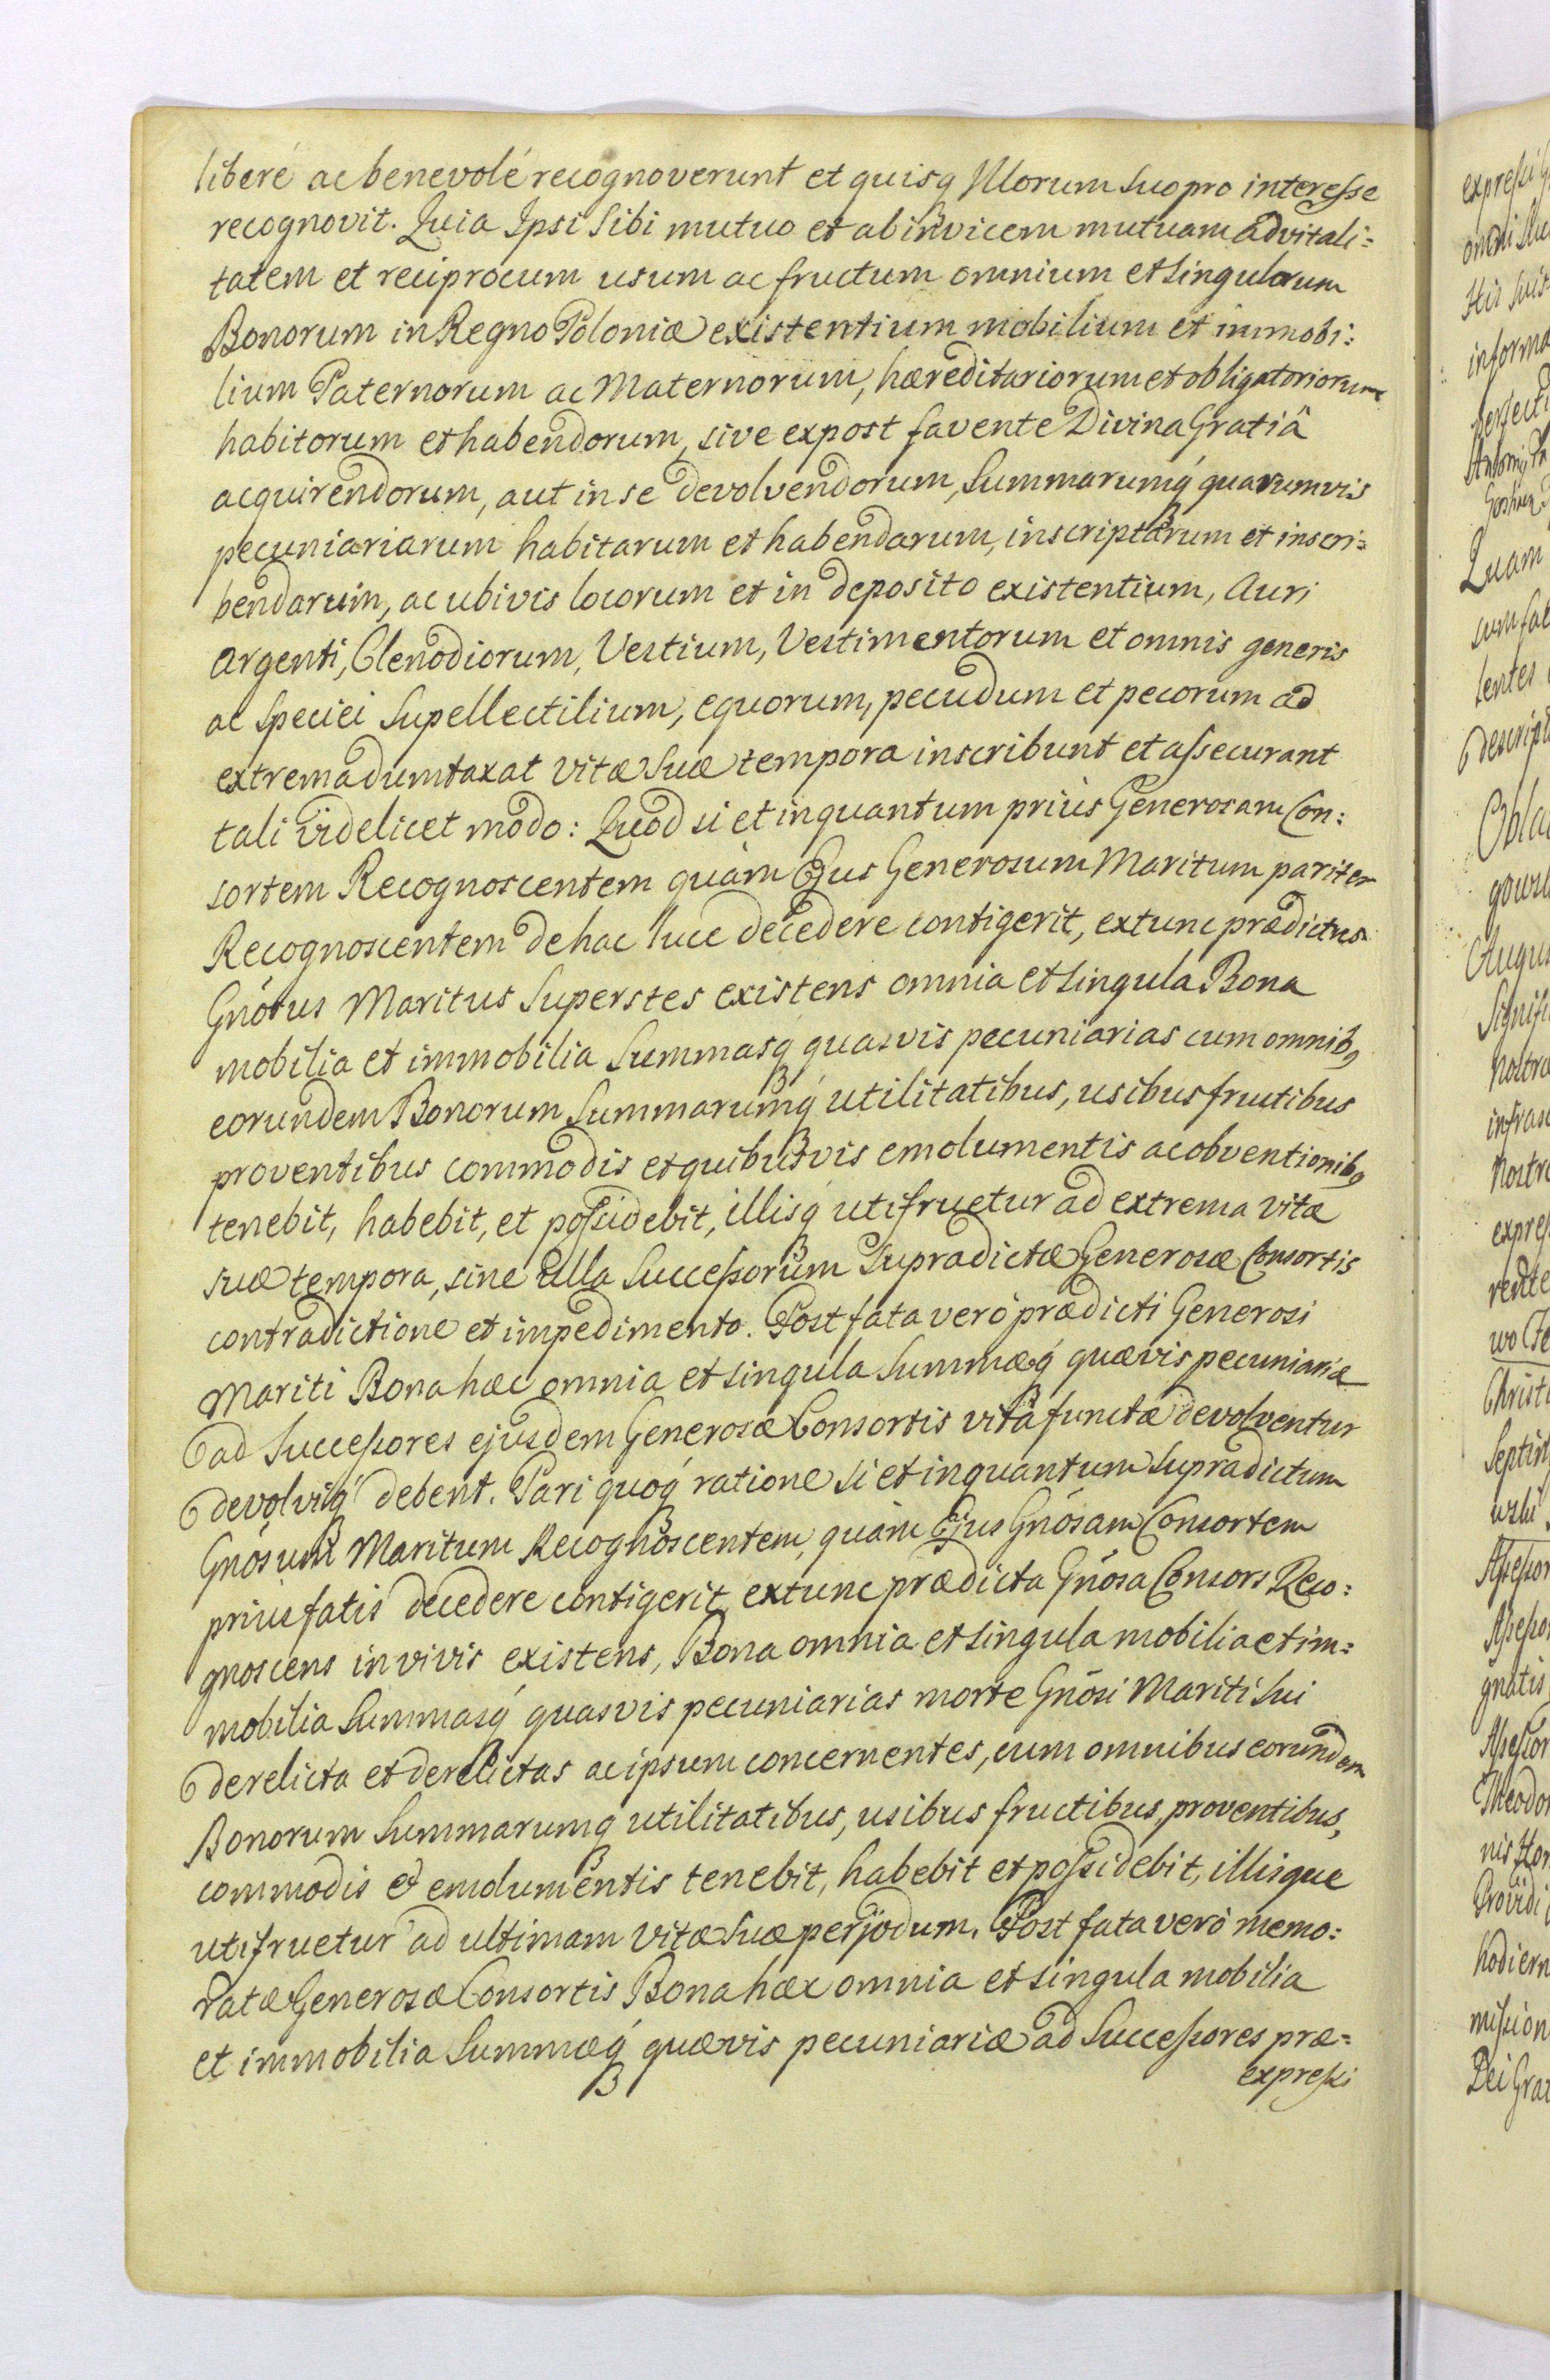 liberé ac benevolé recognoverunt et quisq́ Illorum suo pro interesse
recognovit. Quia Ipsi Sibi mutuo et ab invicem mutuam advitali=
tatem et reciprocum usum ac fructum omnium et singulorum
Bonorum in Regno Poloniæ existentium mobilium et immobi:
lium Paternorum ac Maternorum, hæreditariorum et obligatoriorum
habitorum et habendorum, sive expost favente Divina Gratiâ
acquirendorum, aut in se devolvendorum, Summarumq́ quarumvis
pecuniariarum habitarum et habendarum, inscriptarum et inscri=
bendarum, ac ubivis locorum et in deposito existentium, Auri
Argenti, Clenodiorum, Vestium, Vestimentorum et omnis generis
ac Speciei Supellectilium, equorum, pecudum et pecorum ad
extrema dumtaxat vitæ suæ tempora inscribunt et assecurant
tali videlicet modo: Quod si et inquantum prius Generosam Con:
sortem Recognoscentem quàm Ejus Generosum Maritum pariter
Recognoscentem de hac luce decedere contigerit, extunc prædictus
Gnósus Maritus Superstes existens omnia et singula Bona
mobilia et immobilia Summasq́ quasvis pecuniarias cum omnibꝰ
eorundem Bonorum Summarumq́ utilitatibus, usibus fructibus
proventibus commodis et quibusvis emolumentis ac obventionibꝰ
tenebit, habebit, et possidebit, illisq́ utifruetur ad extrema vitæ
suæ tempora, sine ulla Successorum Supradictæ Generosæ Consortis
contradictione et impedimento. Post fata verò prædicti Generosi
Mariti Bona hæc omnia et singula Summæq́ quævis pecuniariæ
ad Successores ejusdem Generosæ Consortis vitâ functæ devolventur
devolviq́ debent. Pari quoq́ ratione si et inquantum Supradictum
Gnósum Maritum Recognoscentem, quàm Ejus Gnósam Consortem
prius fatis decedere contigerit, extunc prædicta Gnósa Consors Reco:
gnoscens in vivis existens, Bona omnia et singula mobilia et im=
mobilia Summasq́ quasvis pecuniarias morte Gnósi Mariti Sui
derelicta et derelictas ac ipsum concernentes, cum omnibus eorundem
Bonorum Summarumq́ utilitatibus, usibus fructibus, proventibus,
commodis et emolumentis tenebit, habebit et possidebit, illisque
utifruetur ad ultimam vitæ suæ perjodum. Post fata verò memo:
ratæ Generosæ Consortis Bona hæc omnia et singula mobilia
et immobilia Summæq́ quævis pecuniariæ ad Successores præ=
expressi